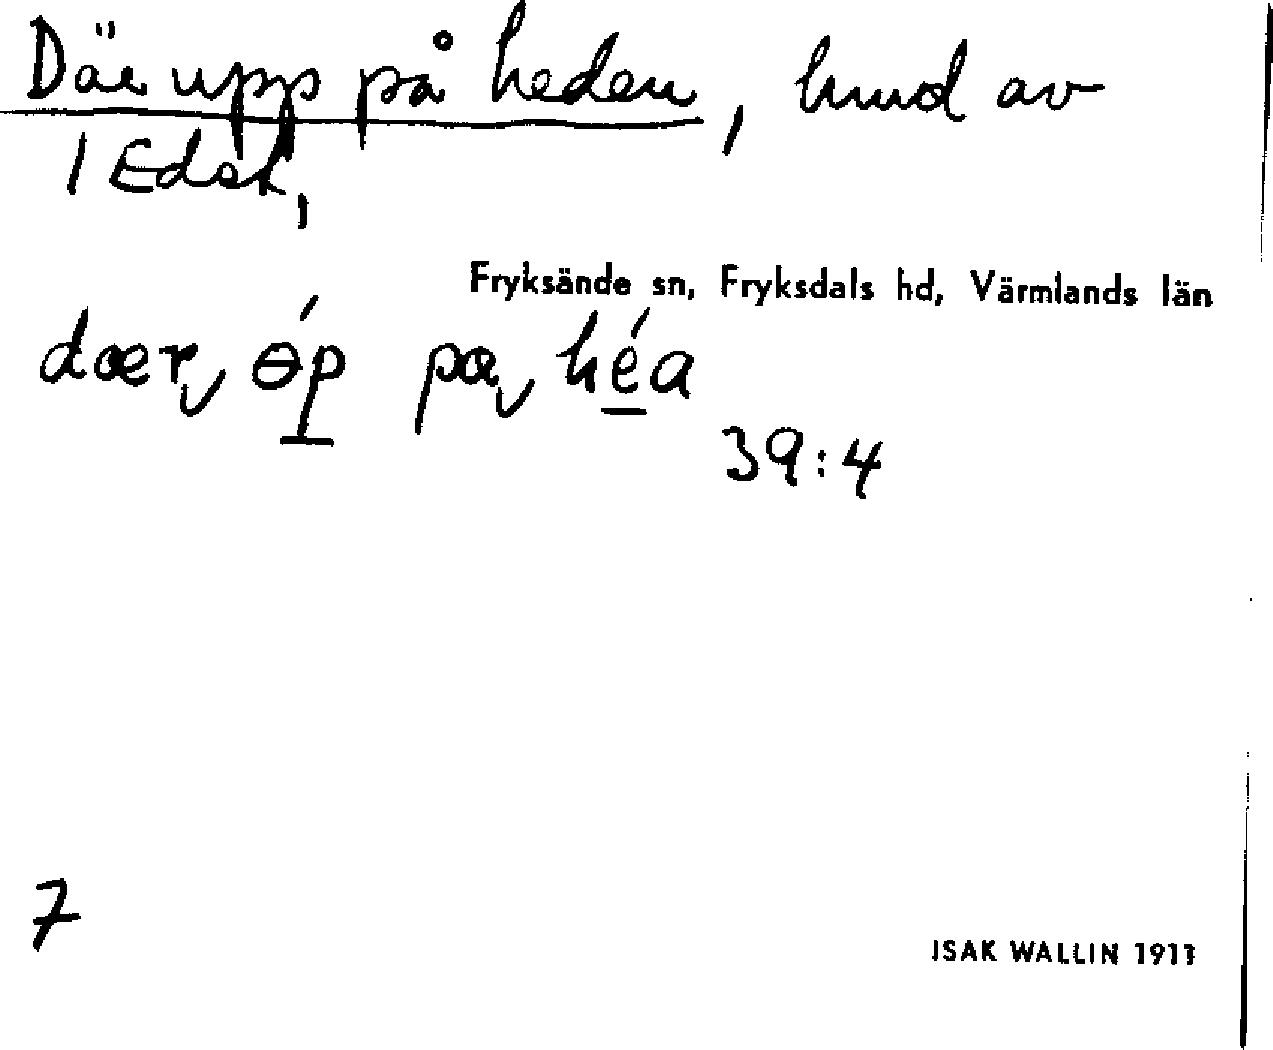 Där upp på heden, hmd av
1 Edsh,
Fryksände sn, Fryksdals hd, Värmlands län
dær ɵ́p pa héa
39:4
7
ISAK WALLIN 1911